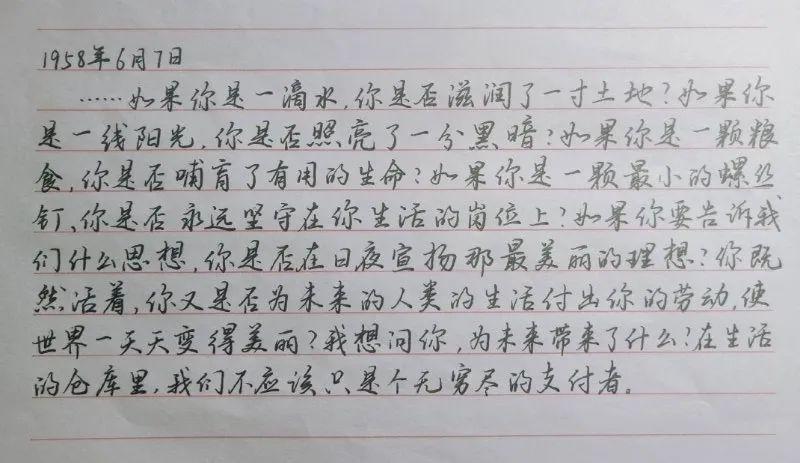 1958年6月7日
……如果你是一滴水,你是否滋润了一寸土地?如果你
是一线阳光,你是否照亮了一分黑暗?如果你是一颗粮
食,你是否哺育了有用的生命?如果你是一颗最小的螺丝
钉、你是否永远坚守在你生活的岗位上?如果你要告诉我
们什么思想,你是否在日夜宣扬那最美丽的理想?你既
然活着,你又是否为未来的人类的生活付出你的劳动,使
世界一天天变得美丽?我想问你,为未来带来了什么?在生活
的仓库里,我们不应该只是个无穷尽的支付者。